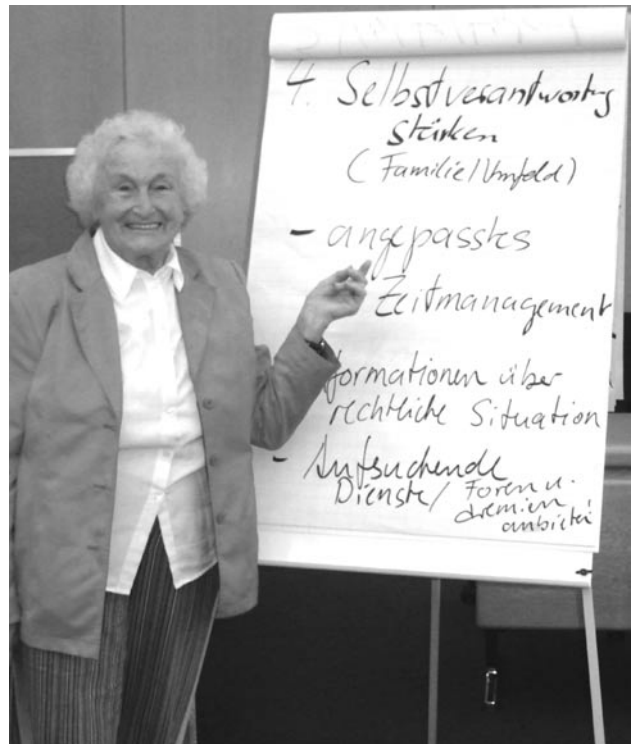 4. Selbstverantwortung
stärken
(Familie/Umfeld)
- angepasstes
Zeitmanagement
formationen über
rechtliche Situation
- Aufsuchende
Dienste/ Foren u.
anbieten